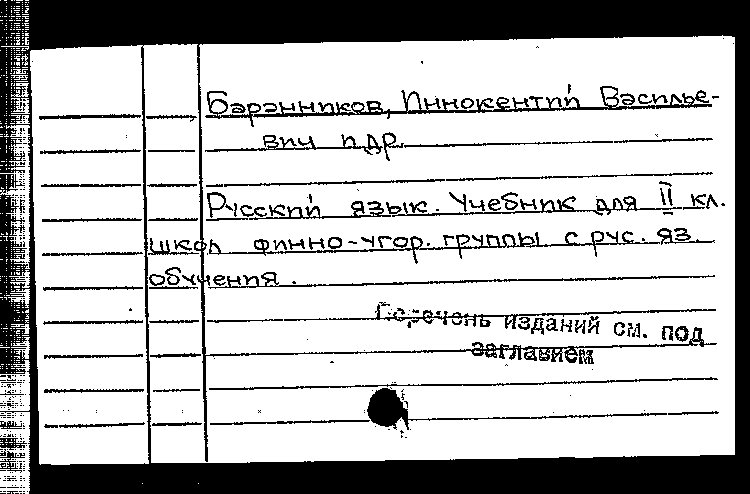 Баранников, Иннокентий Василье-
вич и др.
Русский язык. Учебник для II кл.
школ финно-угор. группы с рус. яз.
обучения.
Перечень изданий см. под
заглавием